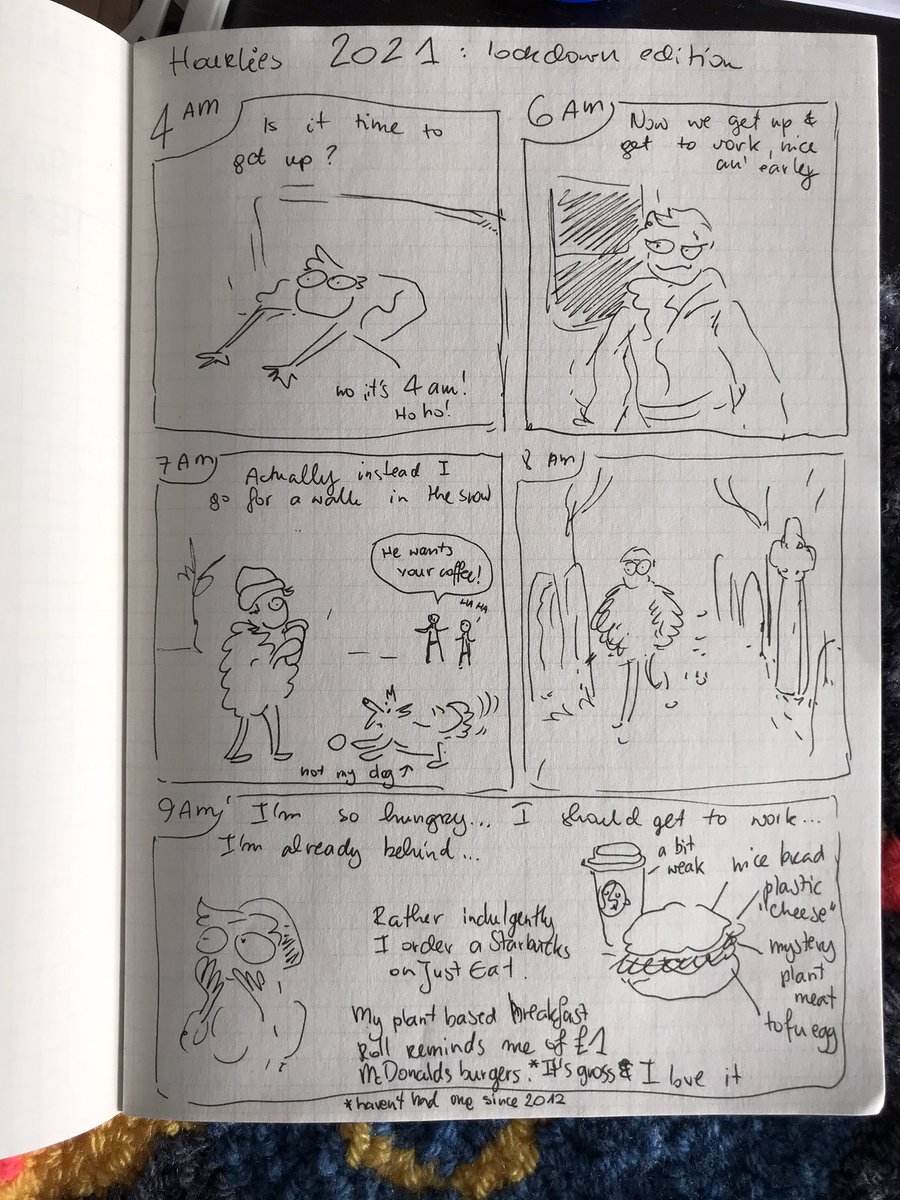 Hourlies 2021: lockdown edition
4 AM
Is it time to
get up?
no, it's 4 am!
Ho ho!
6 AM
Now we get up &
get to work, nice
an' earley
7 AM
Actually instead I
go for a walk in the snow
He wants
your coffee!
HA HA
not my dog ↑
8 AM
9 AM
I'm so hungry... I should get to work...
I'm already behind...
Rather indulgently
I order a Starbucks
on Just Eat.
My plant based breakfast
Roll reminds me of £1
McDonalds burgers.* It's gross & I love it
*haven't had one since 2012
a bit
weak
nice bread
plastic
"cheese"
mystery
plant
meat
tofu egg